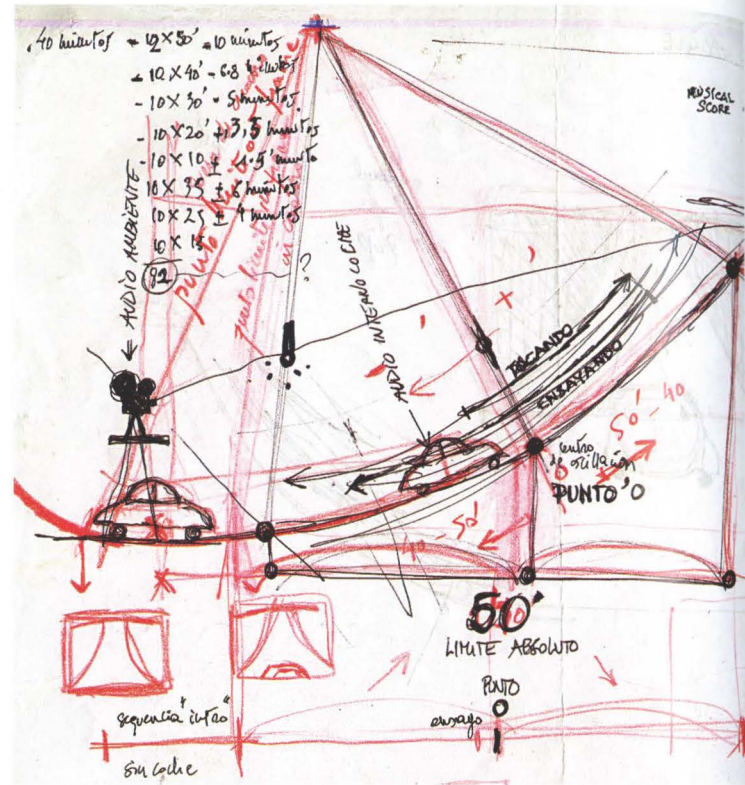 .40 minutos = 12 x 50' = 10 minutos
- 10 x 40' - 6.8 minutos
- 10 x 30' - 5 minutos.
- 10 x 20' ± 3,5 minutos
- 10 x 10 ± 1.5' minuto
10 x 35 ± 6 minutos
10 x 25 ± 4 minutos
10 x 15
82
MUSICAL
SCORE
← AUDIO AMBIENTE
punto
punto limite
?
AUDIO INTERNO COCHE
TOCANDO
ENSAYANDO
50'-40
centro
de oscillación
PUNTO 'O
40-50'
50'
LIMITE ABSOLUTO
PUNTO
O
ensayo
sequencia "intro"
sin coche